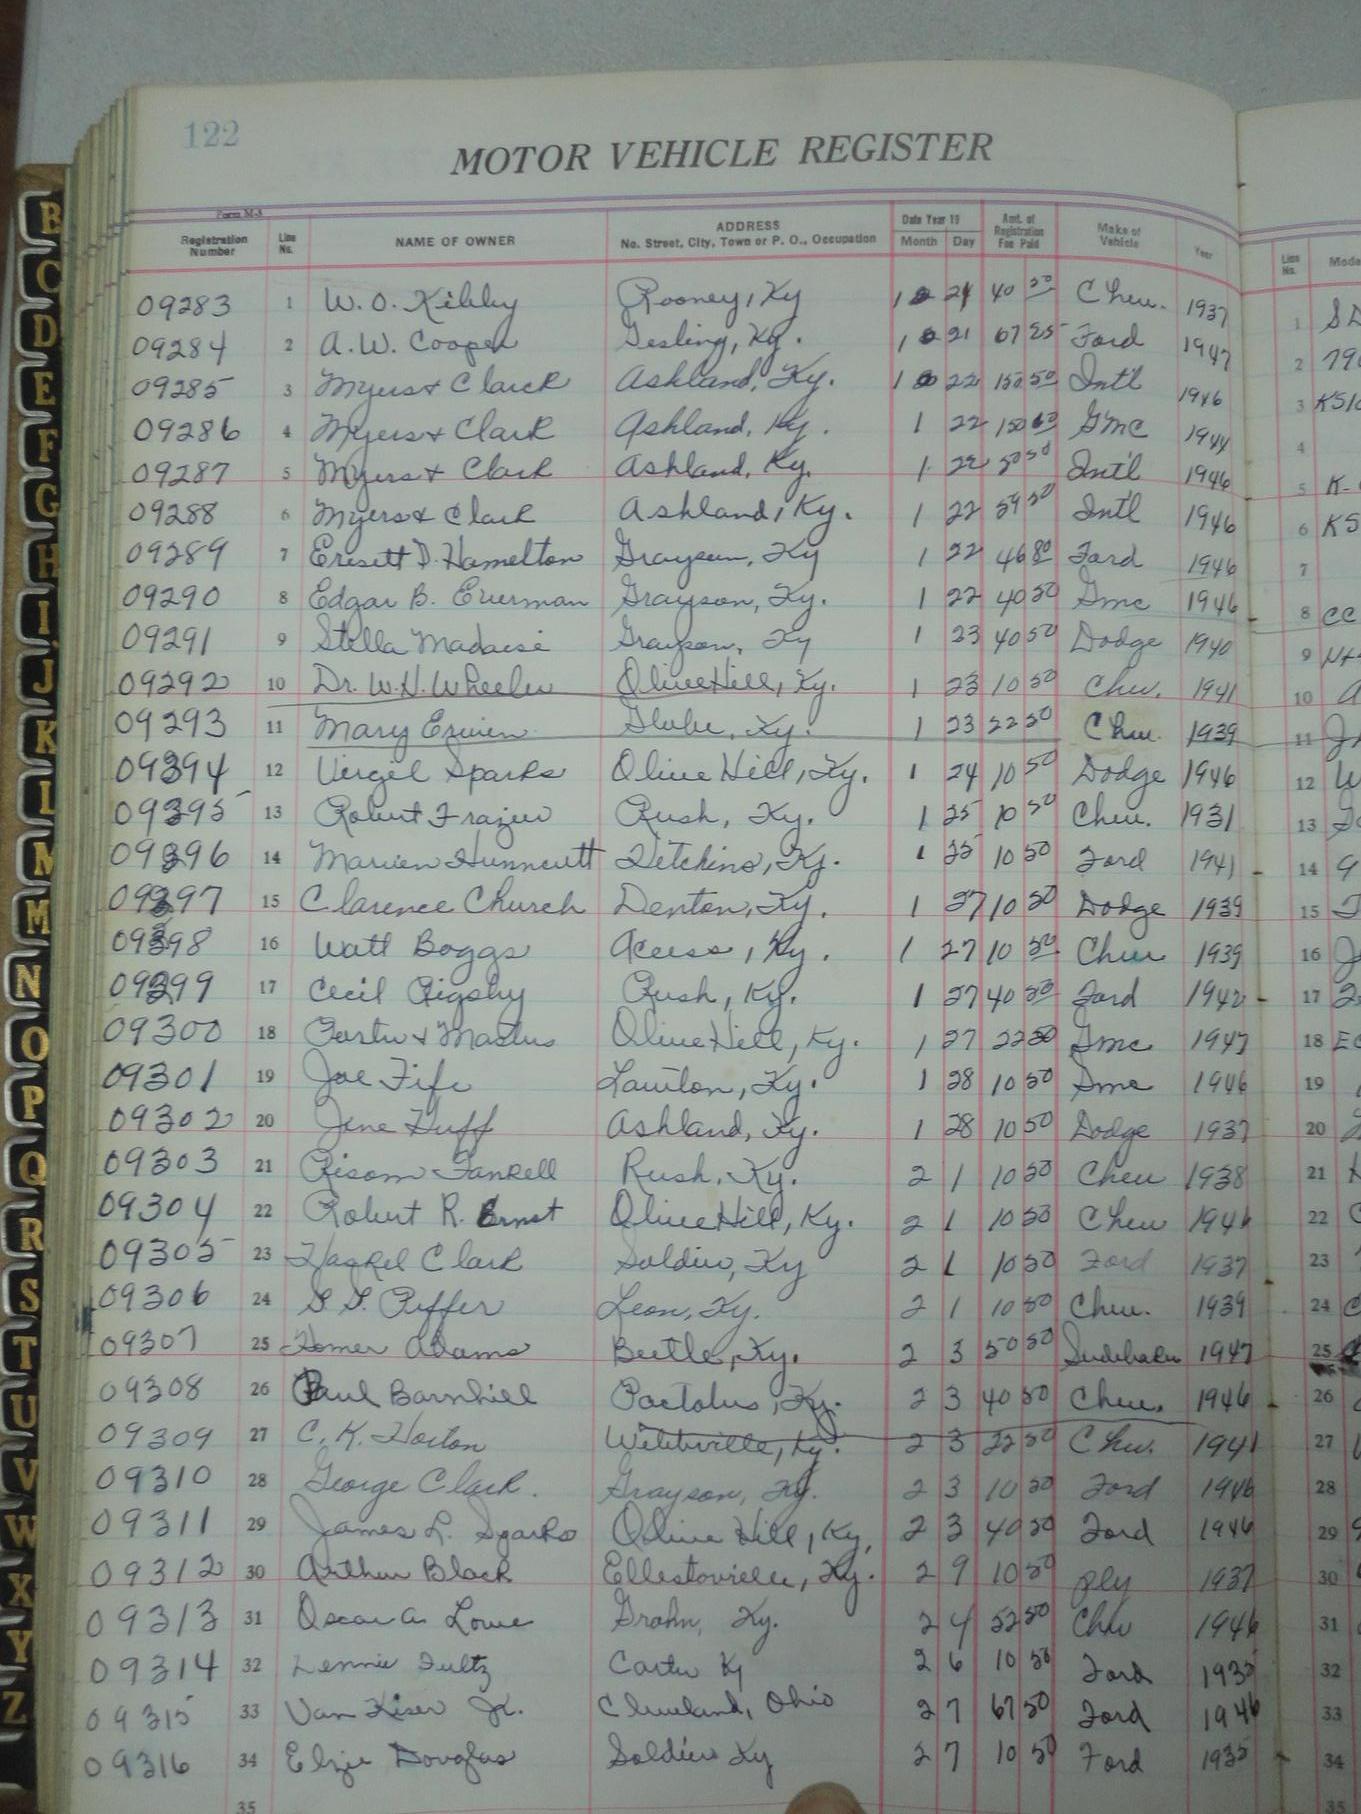 122
MOTOR VEHICLE REGISTER
Form M-3
Registration Number Line No. NAME OF OWNER ADDRESS No. Street, City, Town or P. O., Occupation Date Year 19 Month Day Amt. of Registration Fee Paid Make of Vehicle Year Line No.
09283 1 W. O. Kibby Rooney, Ky 1 21 40 50 Chev. 1937 1
09284 2 A. W. Cooper Gesling, Ky. 1 21 67 25 Ford 1947 2
09285 3 Myers & Clark Ashland, Ky. 1 22 150 50 Int'l 1946 3
09286 4 Myers & Clark Ashland, Ky. 1 22 150 GMC 1944 4
09287 5 Myers & Clark Ashland, Ky. 1 22 50 50 Int'l 1946 5 K-
09288 6 Myers & Clark Ashland, Ky. 1 22 59 50 Intl 1946 6 KS
09289 7 D. Hamelton Grayson, Ky 1 22 46 80 Ford 1946 7
09290 8 Edgar B. Everman Grayson, Ky. 1 22 40 50 Gmc 1946 8 CC
09291 9 Stella Grayson, Ky 1 23 40 50 Dodge 1940 9
09292 10 Dr. W. H. Wheeler Olive Hill, Ky. 1 23 10 50 Chev. 1941 10
09293 11 Mary Erwin Globe, Ky. 1 23 22 50 Chev. 1939 11
09394 12 Virgil Sparks Olive Hill, Ky. 1 24 10 50 Dodge 1946 12
09395 13 Robert Frazier Rush, Ky. 1 25 10 50 Chev. 1931 13
09396 14 Marion Hunnicutt Hitchins, Ky. 1 25 10 50 Ford 1941 14
09397 15 Clarence Church Denton, Ky. 1 27 10 50 Dodge 1939 15
09398 16 Watt Boggs Access, Ky. 1 27 10 50 Chev 1939 16
09399 17 Cecil Rigsby Rush, Ky. 1 27 40 50 Ford 1942 17
09300 18 Olive Hill, Ky. 1 27 22 50 Gmc 1947 18
09301 19 Joe Fife Lawton, Ky. 1 28 10 50 Gmc 1946 19
09302 20 Jene Huff Ashland, Ky. 1 28 10 50 Dodge 1937 20
09303 21 Risom Fankell Rush, Ky. 2 1 10 50 Chev 1938 21
09304 22 Robert R. Ernst Olive Hill, Ky. 2 1 10 50 Chev 1946 22
09305 23 Haskel Clark Soldier, Ky 2 1 10 50 Ford 1937 23
09306 24 Puffer Leon, Ky. 2 1 10 50 Chev. 1939 24
09307 25 Homer Adams Beetle, Ky. 2 3 50 50 Studebaker 1947 25
09308 26 Paul Barnhill Pactolus, Ky. 2 3 40 50 Chev. 1946 26
09309 27 C. K. Horton Webbville, Ky. 2 3 22 50 Chev. 1941 27
09310 28 George Clark. Grayson, Ky. 2 3 10 50 Ford 1946 28
09311 29 James L. Sparks Olive Hill, Ky, 2 3 40 50 Ford 1946 29
09312 30 Arthur Black Ky. 2 9 10 50 Ply 1937 30
09313 31 Oscar A. Lowe Grahn, Ky. 2 4 52 50 Chev 1946 31
09314 32 Lennie Fultz Carter Ky 2 6 10 50 Ford 1935 32
09315 33 Van Kiser Jr. Cleveland, Ohio 2 7 67 50 Ford 1946 33
09316 34 Elzie Douglas Soldier Ky 2 7 10 50 Ford 1935 34
35 35
B
C
D
E
F
G
H
I
J
K
L
M
M
N
O
P
Q
R
S
T
U
V
W
X
Y
Z